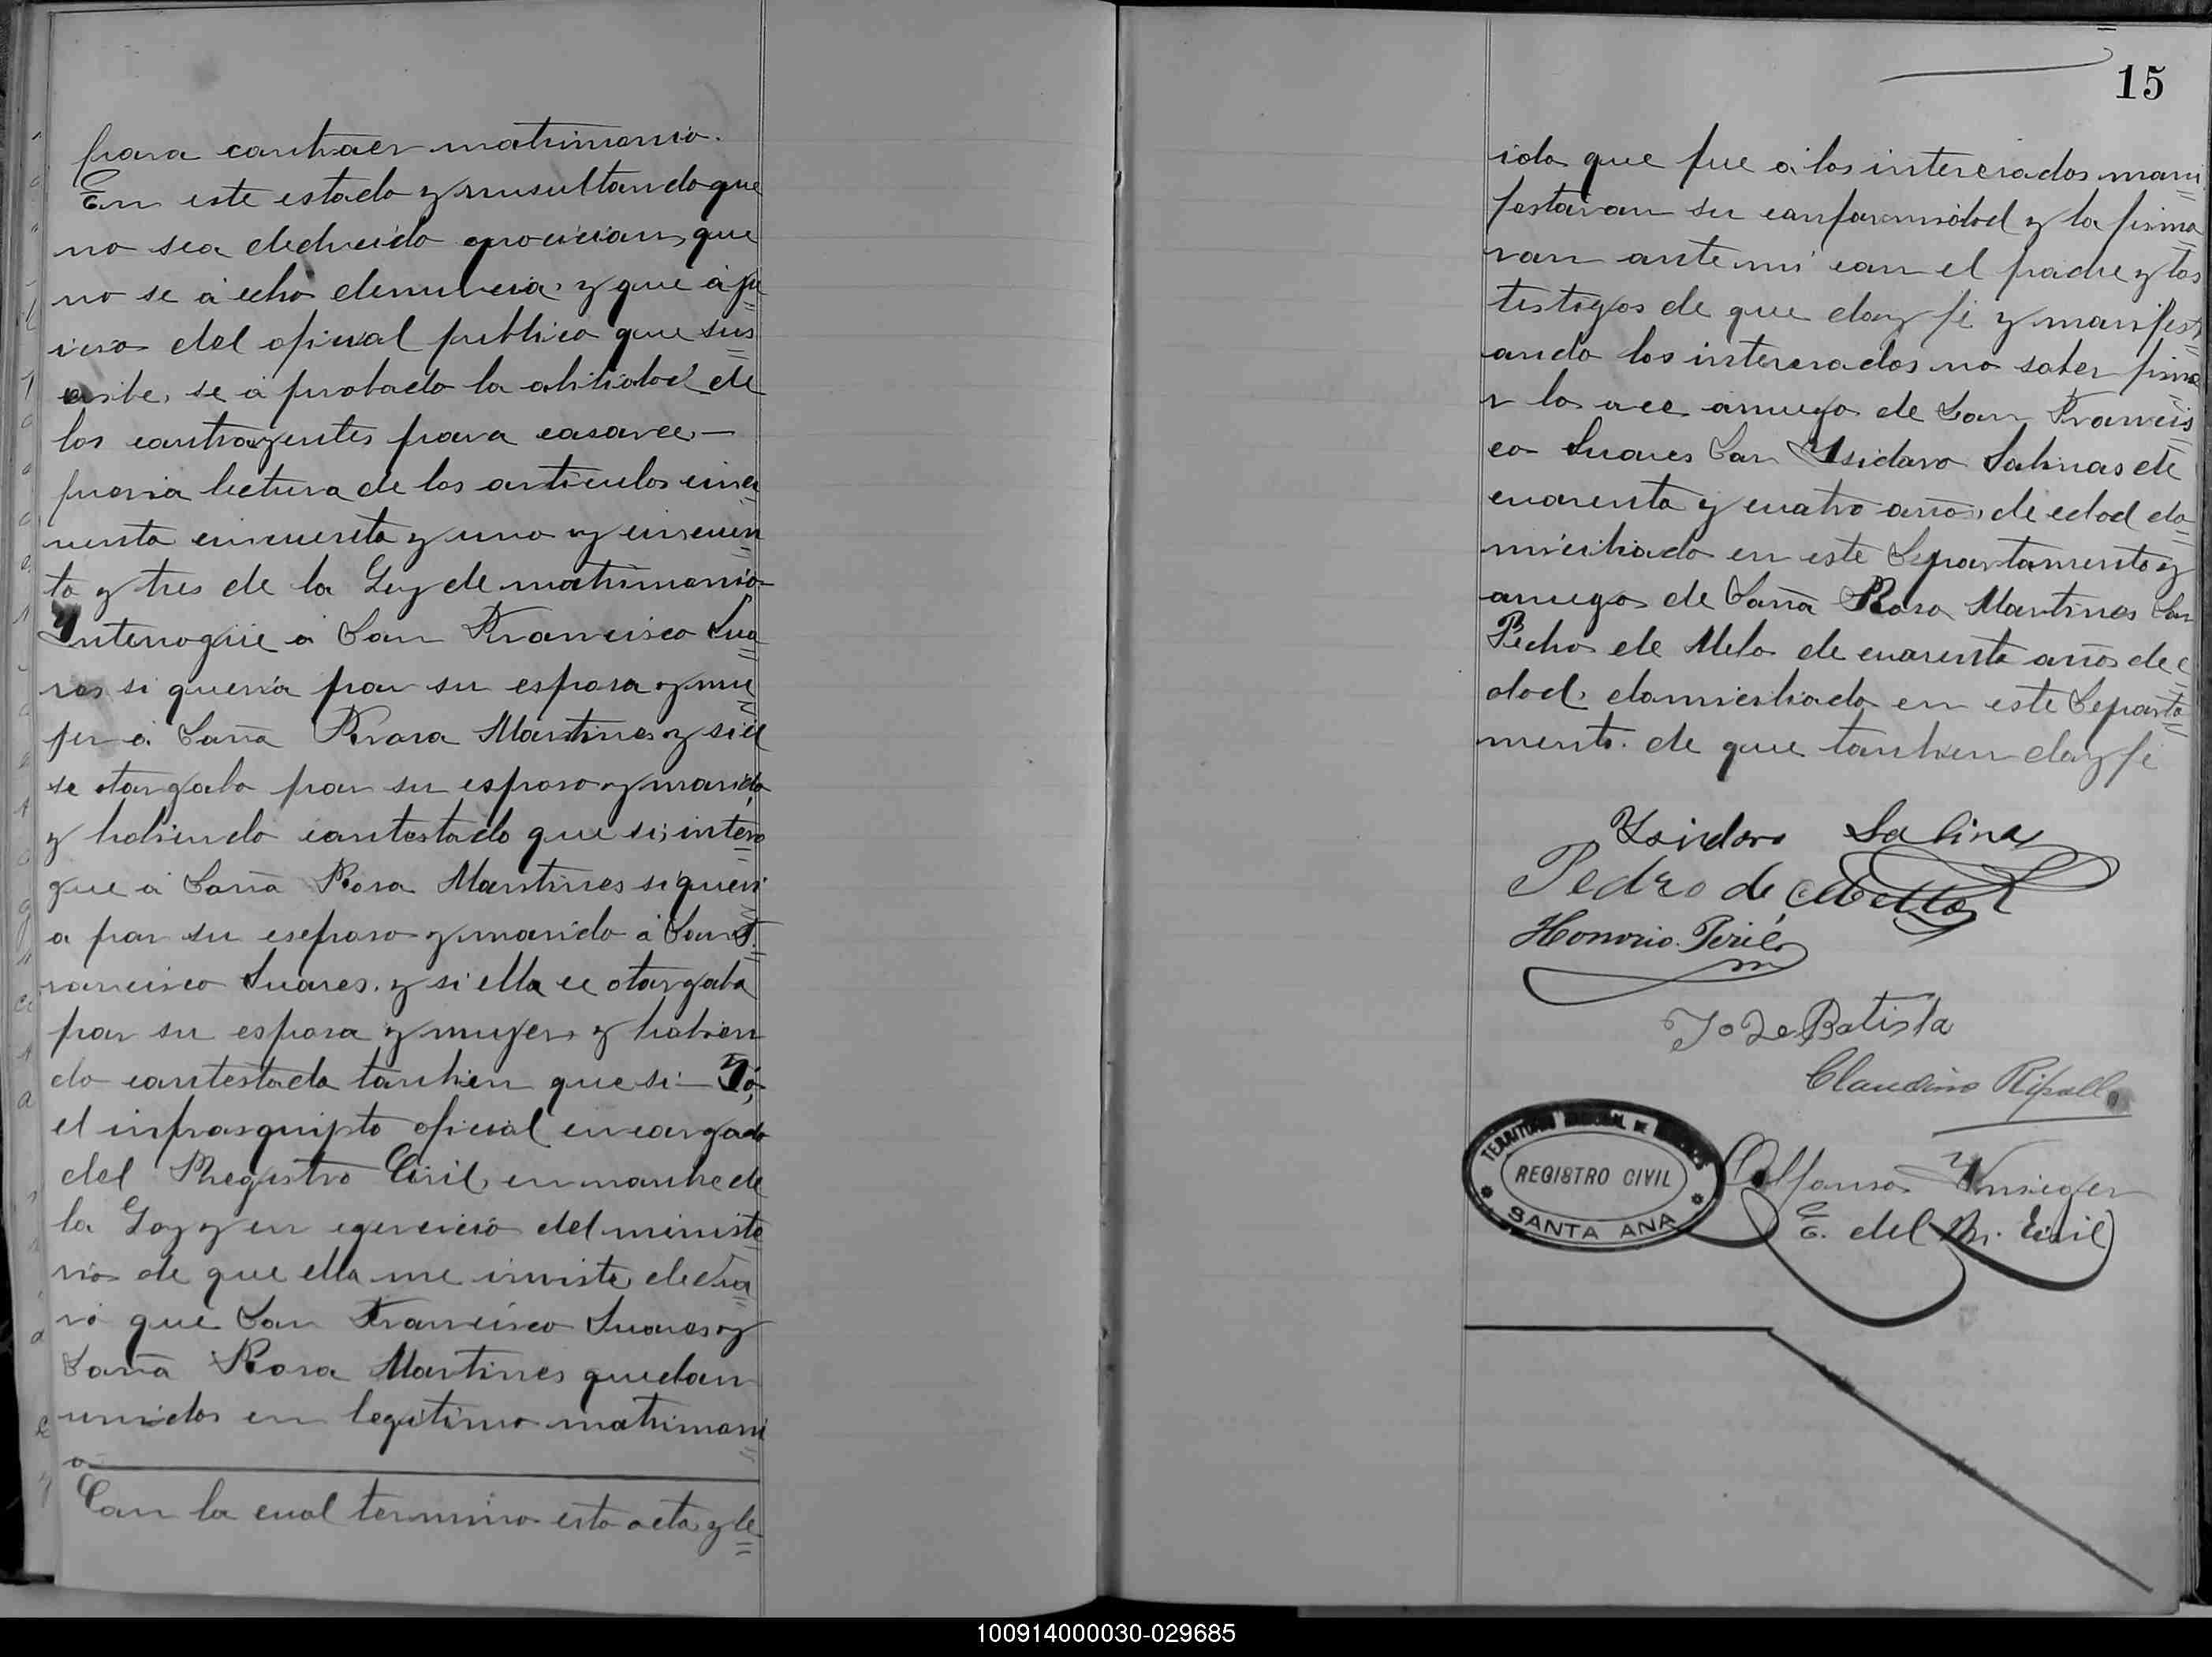 para contraer matrimonio.
En este estado y rusultando que
no sea deducido opocician, que
no se á echo denuncia, y que á ju
icio del oficial publico que sus
cribe, se á probado la abilidad de
los contrayentes para casarce,—
previa lectura de los articulos cinc
uenta cincuenta y uno y cincuen
ta y tres de la Ley de matrimonio
Interrogúe á Don Francisco Sua
res si queria por su esposa y mu
jer á Doña Rosa Martines y si el
se otorgaba por su esposo y marido
y habiendo contestado que si; interro
gue á Doña Rosa Martines si queri
a por su eseposo y marido á Don F
rancisco Suares. y si ella ce otorgaba
por su esposa y mujer, y habien
do contestado tanbien que si— Yó,
el infrasquipto oficial encargado
del Registro Civil, en nonbre de
la Ley y en egercicio del ministe
rio de que ella me inviste, decla
ró que Don Francisco Suares y
Doña Rosa Martines quedan
unidos en legitimo matrimoni
o
Con la cual termino esta acta y le
15
ida que fue á los interecados mani
festaran su conformidad y la firma
ran ante mi con el padre y los
testigos de que doy fé y manifest
ando los interesados no saber firma
r lo ace aruego de Don Francis
co Suares Don Ysidoro Salinas de
cuarenta y cuatro años, de edad do
miciliado en este Departamento y
aruego de Doña Rosa Martines Don
Pedro de Melo de cuarenta años de e
dad, domiciliado en este Departa
mento. de que tanbien doy fé
Ysidoro Salina
Pedro de Mello
Honorio Periés
Joze Batista
Claudino Ripoll
TERRITORIO NACIONAL DE MISIONES
REGISTRO CIVIL
SANTA ANA
Alfonso Krieger
E. del R. Civil
100914000030-029685